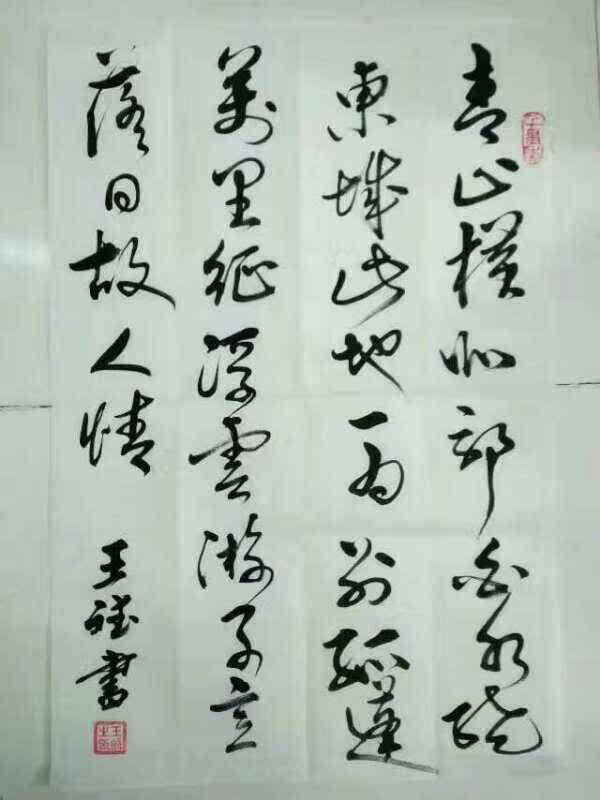 青山橫北郭白水繞
東城此地一為別孤蓬
萬里征浮雲游子意
落日故人情 王書